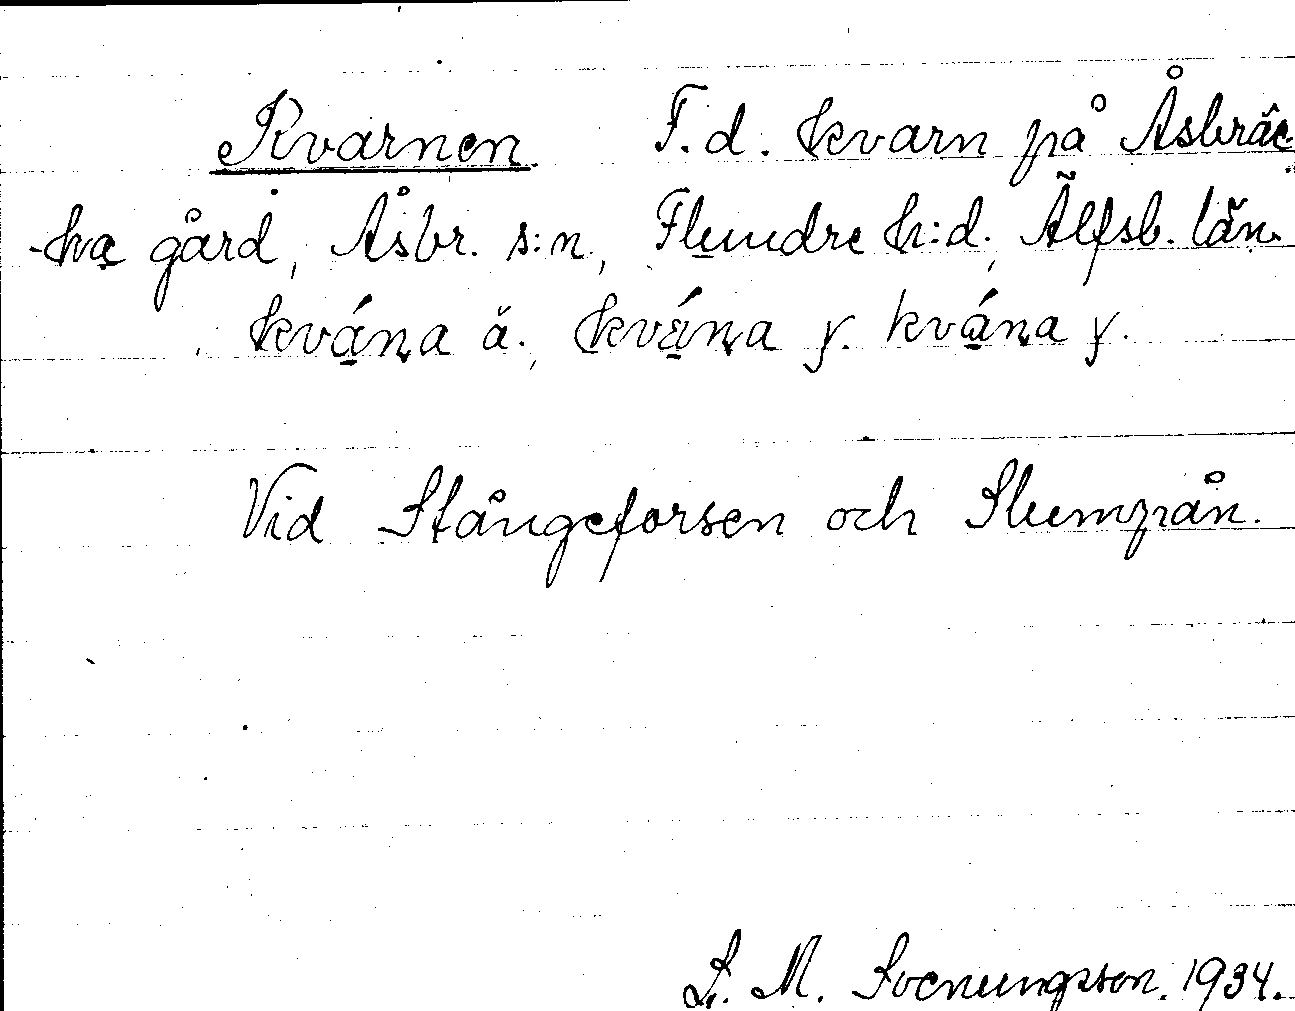 Kvarnen. F.d. kvarn på Åsbräc-
-ka gård, Åsbr. s:n, Flundre h:d, Älfsb. län.
kvána ä., kvä́na y. kvána y.
Vid Stångeforsen och Slumpån.
L. M. Svenungsson. 1934.